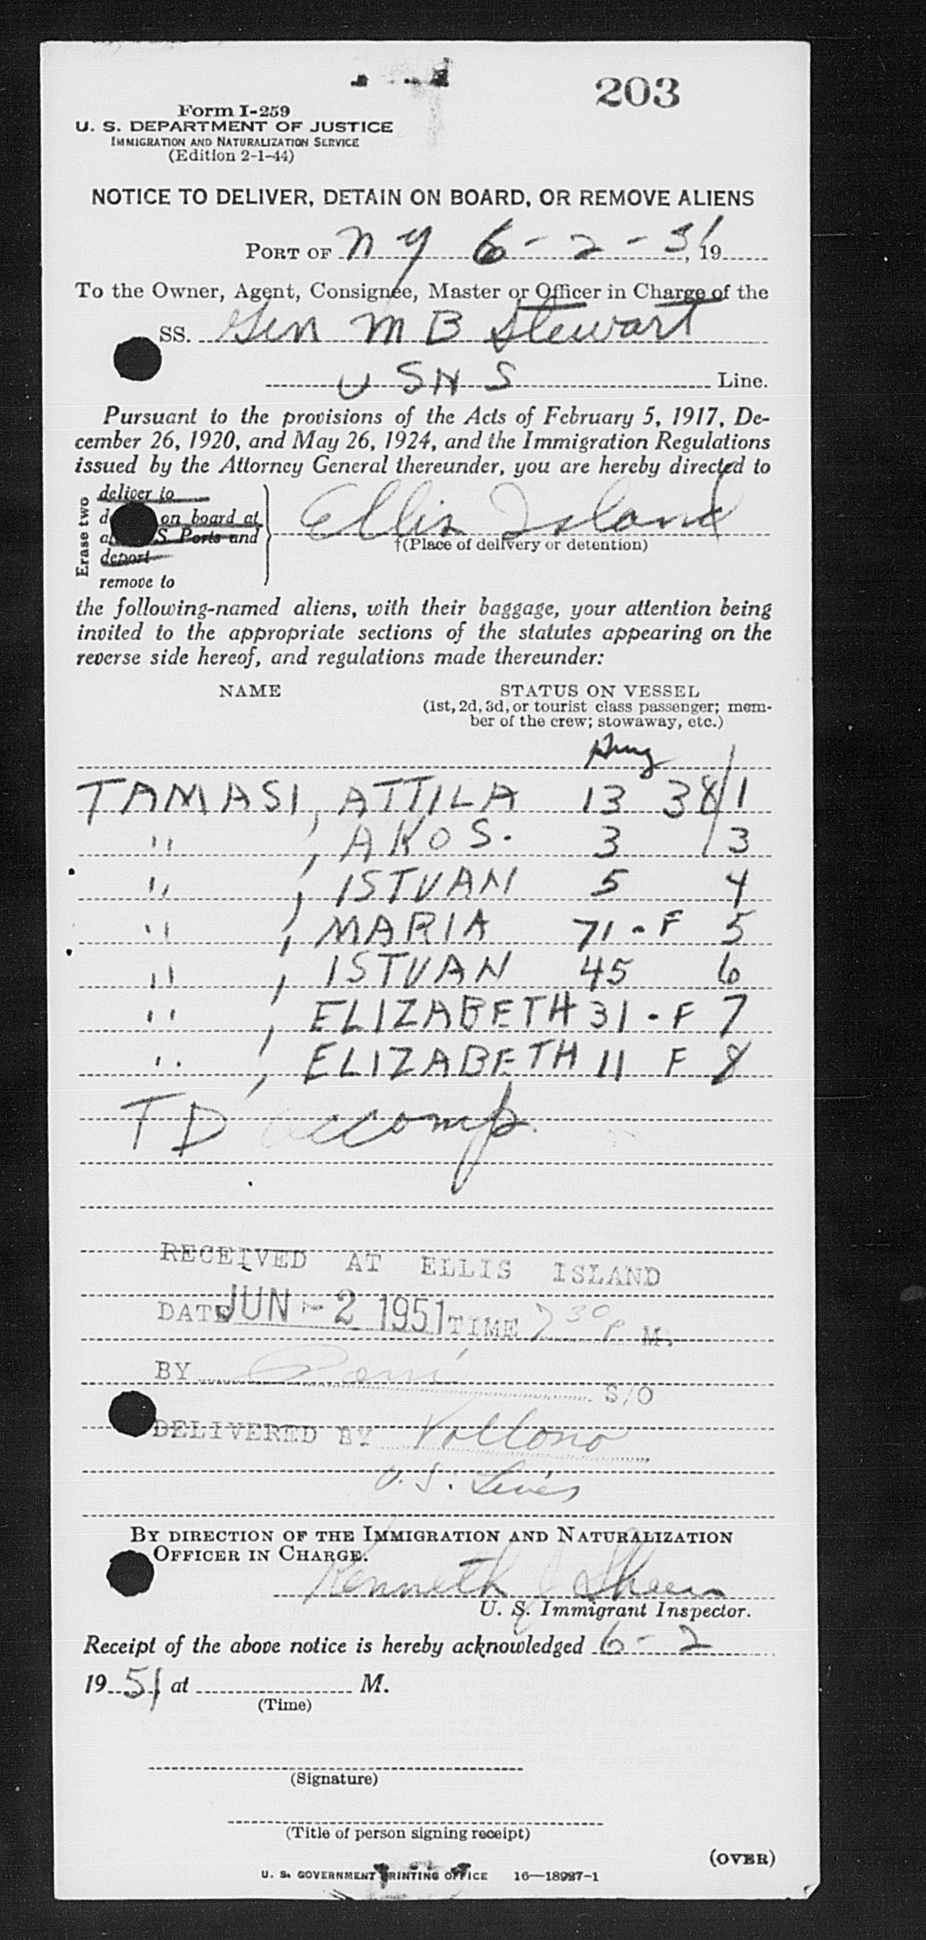 203
Form I-259
U. S. DEPARTMENT OF JUSTICE
IMMIGRATION AND NATURALIZATION SERVICE
(Edition 2-1-44)
NOTICE TO DELIVER, DETAIN ON BOARD, OR REMOVE ALIENS
PORT OF N Y 6-2-51, 19
To the Owner, Agent, Consignee, Master or Officer in Charge of the
SS. Gen M B Stewart
USNS Line.
Pursuant to the provisions of the Acts of February 5, 1917, De-
cember 26, 1920, and May 26, 1924, and the Immigration Regulations
issued by the Attorney General thereunder, you are hereby directed to
Erase two
deliver to
on board at
S. Ports and
deport
remove to
Ellis Island
†(Place of delivery or detention)
the following-named aliens, with their baggage, your attention being
invited to the appropriate sections of the statutes appearing on the
reverse side hereof, and regulations made thereunder:
NAME STATUS ON VESSEL
(1st, 2d, 3d, or tourist class passenger; mem-
ber of the crew; stowaway, etc.)
TAMASI, ATTILA 13 38/1
" , AKOS. 3 3
" , ISTVAN 5 4
" , MARIA 71-F 5
" , ISTVAN 45 6
" , ELIZABETH 31-F 7
" , ELIZABETH 11 F 8
TD accomp.
RECEIVED AT ELLIS ISLAND
DATE JUN -2 1951 TIME 7 30 P M.
BY S/O
DELIVERED BY
U.S. Lines
BY DIRECTION OF THE IMMIGRATION AND NATURALIZATION
OFFICER IN CHARGE.
Kenneth
U. S. Immigrant Inspector.
Receipt of the above notice is hereby acknowledged 6-2
1951, at M.
(Time)
(Signature)
(Title of person signing receipt)
(OVER)
U. S. GOVERNMENT PRINTING OFFICE 16—18997-1